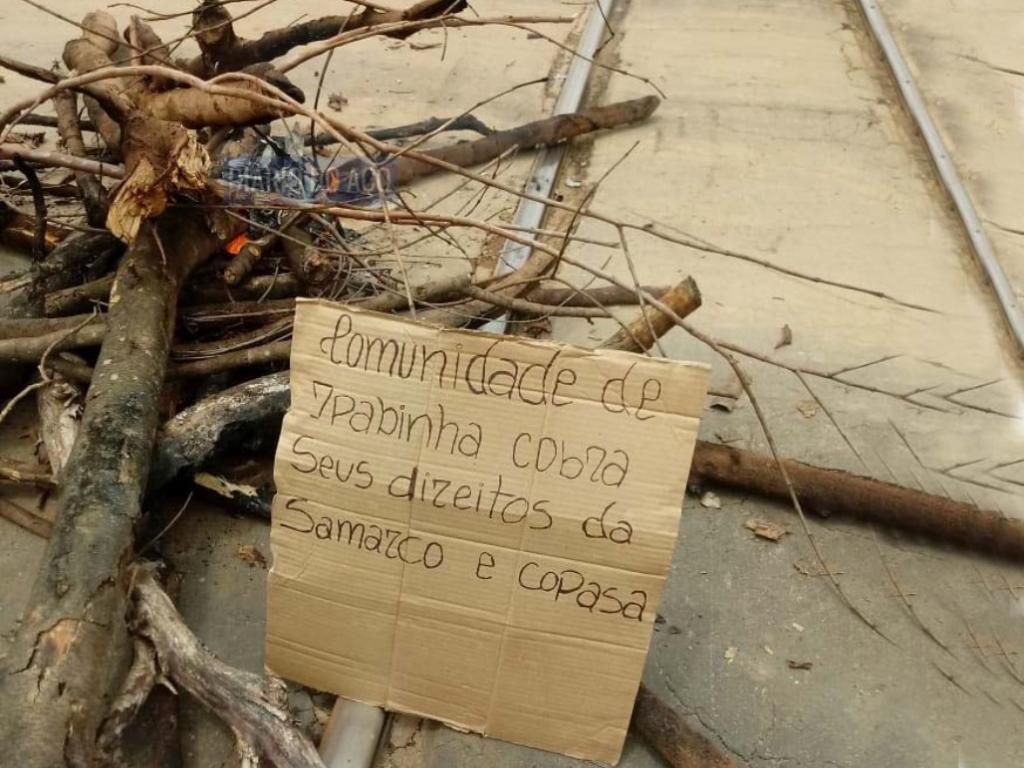 DIÁRIO DO AÇO
Comunidade de
Ipabinha cobra
Seus direitos da
Samarco e copasa